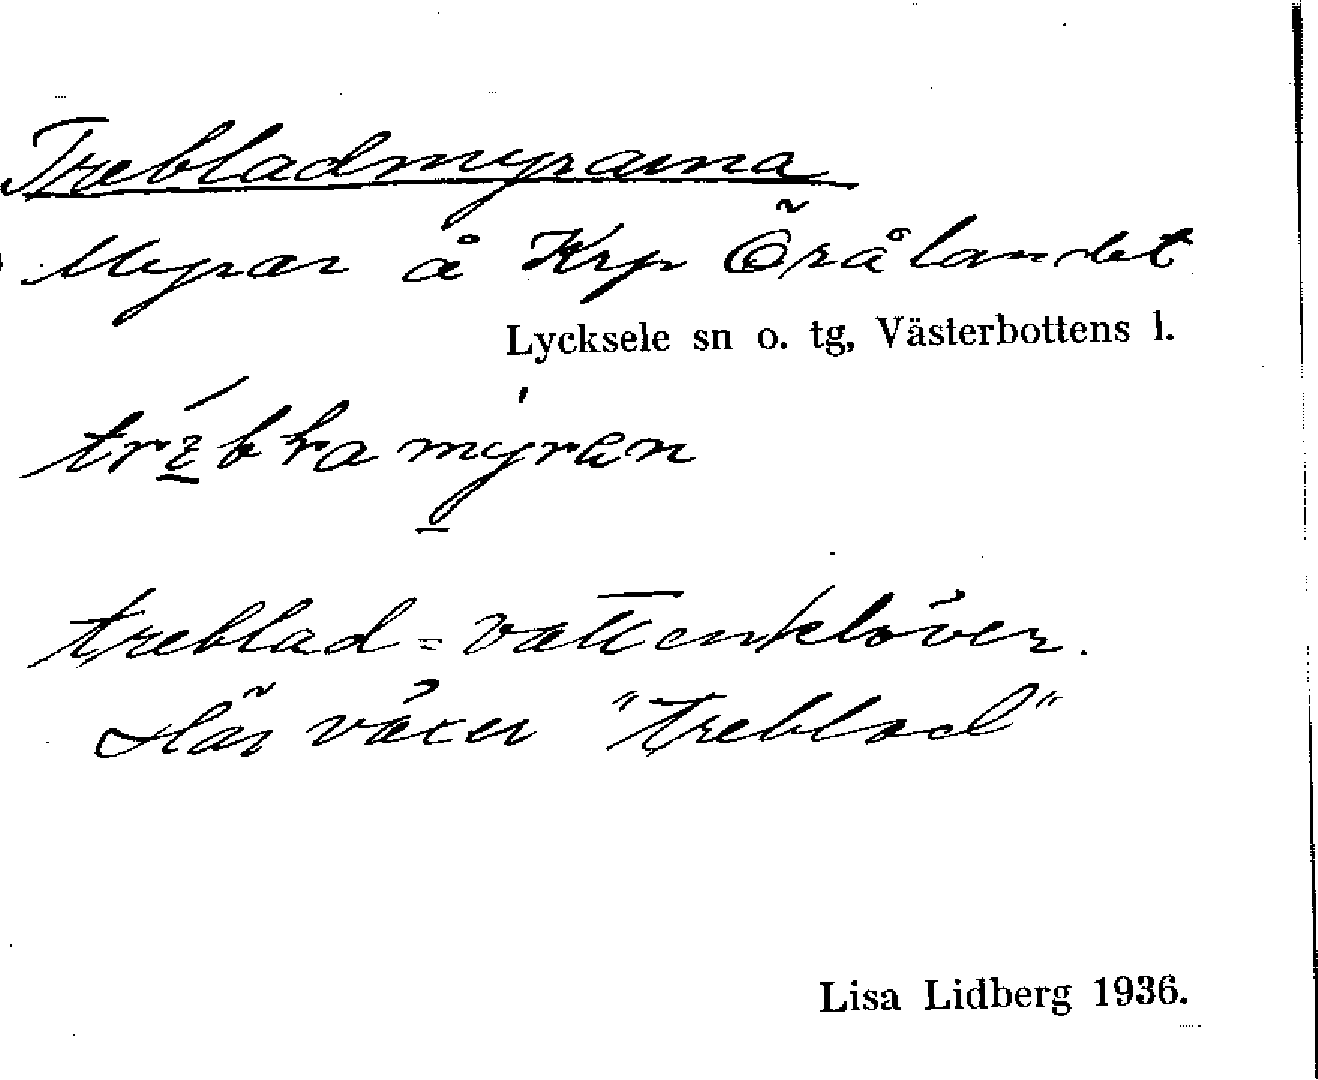 Trebladmyrarna
Myrar å Krp Örålandet
Lycksele sn o. tg, Västerbottens l.
treblad = vattenklöver.
Här växer "treblad"
Lisa Lidberg 1936.